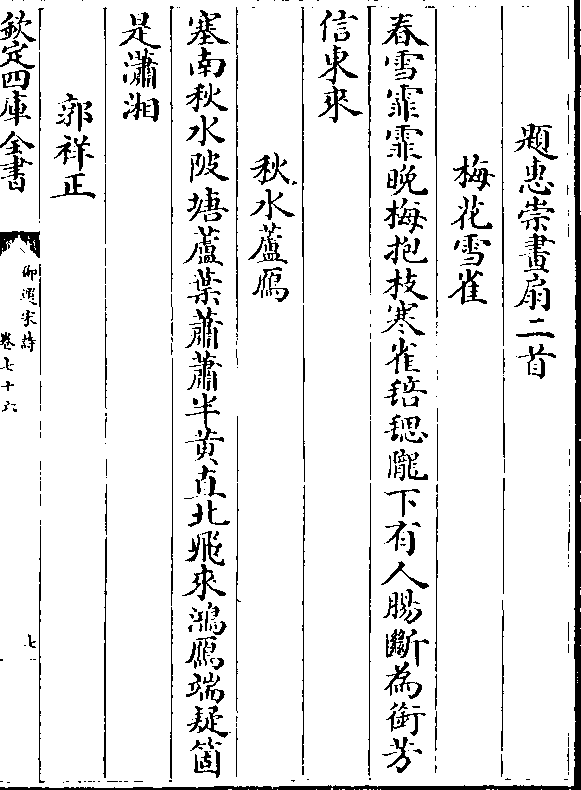 題惠崇畫扇二首
梅花雪雀
春雪霏霏晚梅抱枝寒雀毰毸隴下有人腸斷為銜芳
信東來
秋水蘆鴈
塞南秋水陂塘蘆葉蕭蕭半黄直北飛來鴻鴈端疑箇
是瀟湘
郭祥正
欽定四庫全書
御選宋詩
卷七十六
七